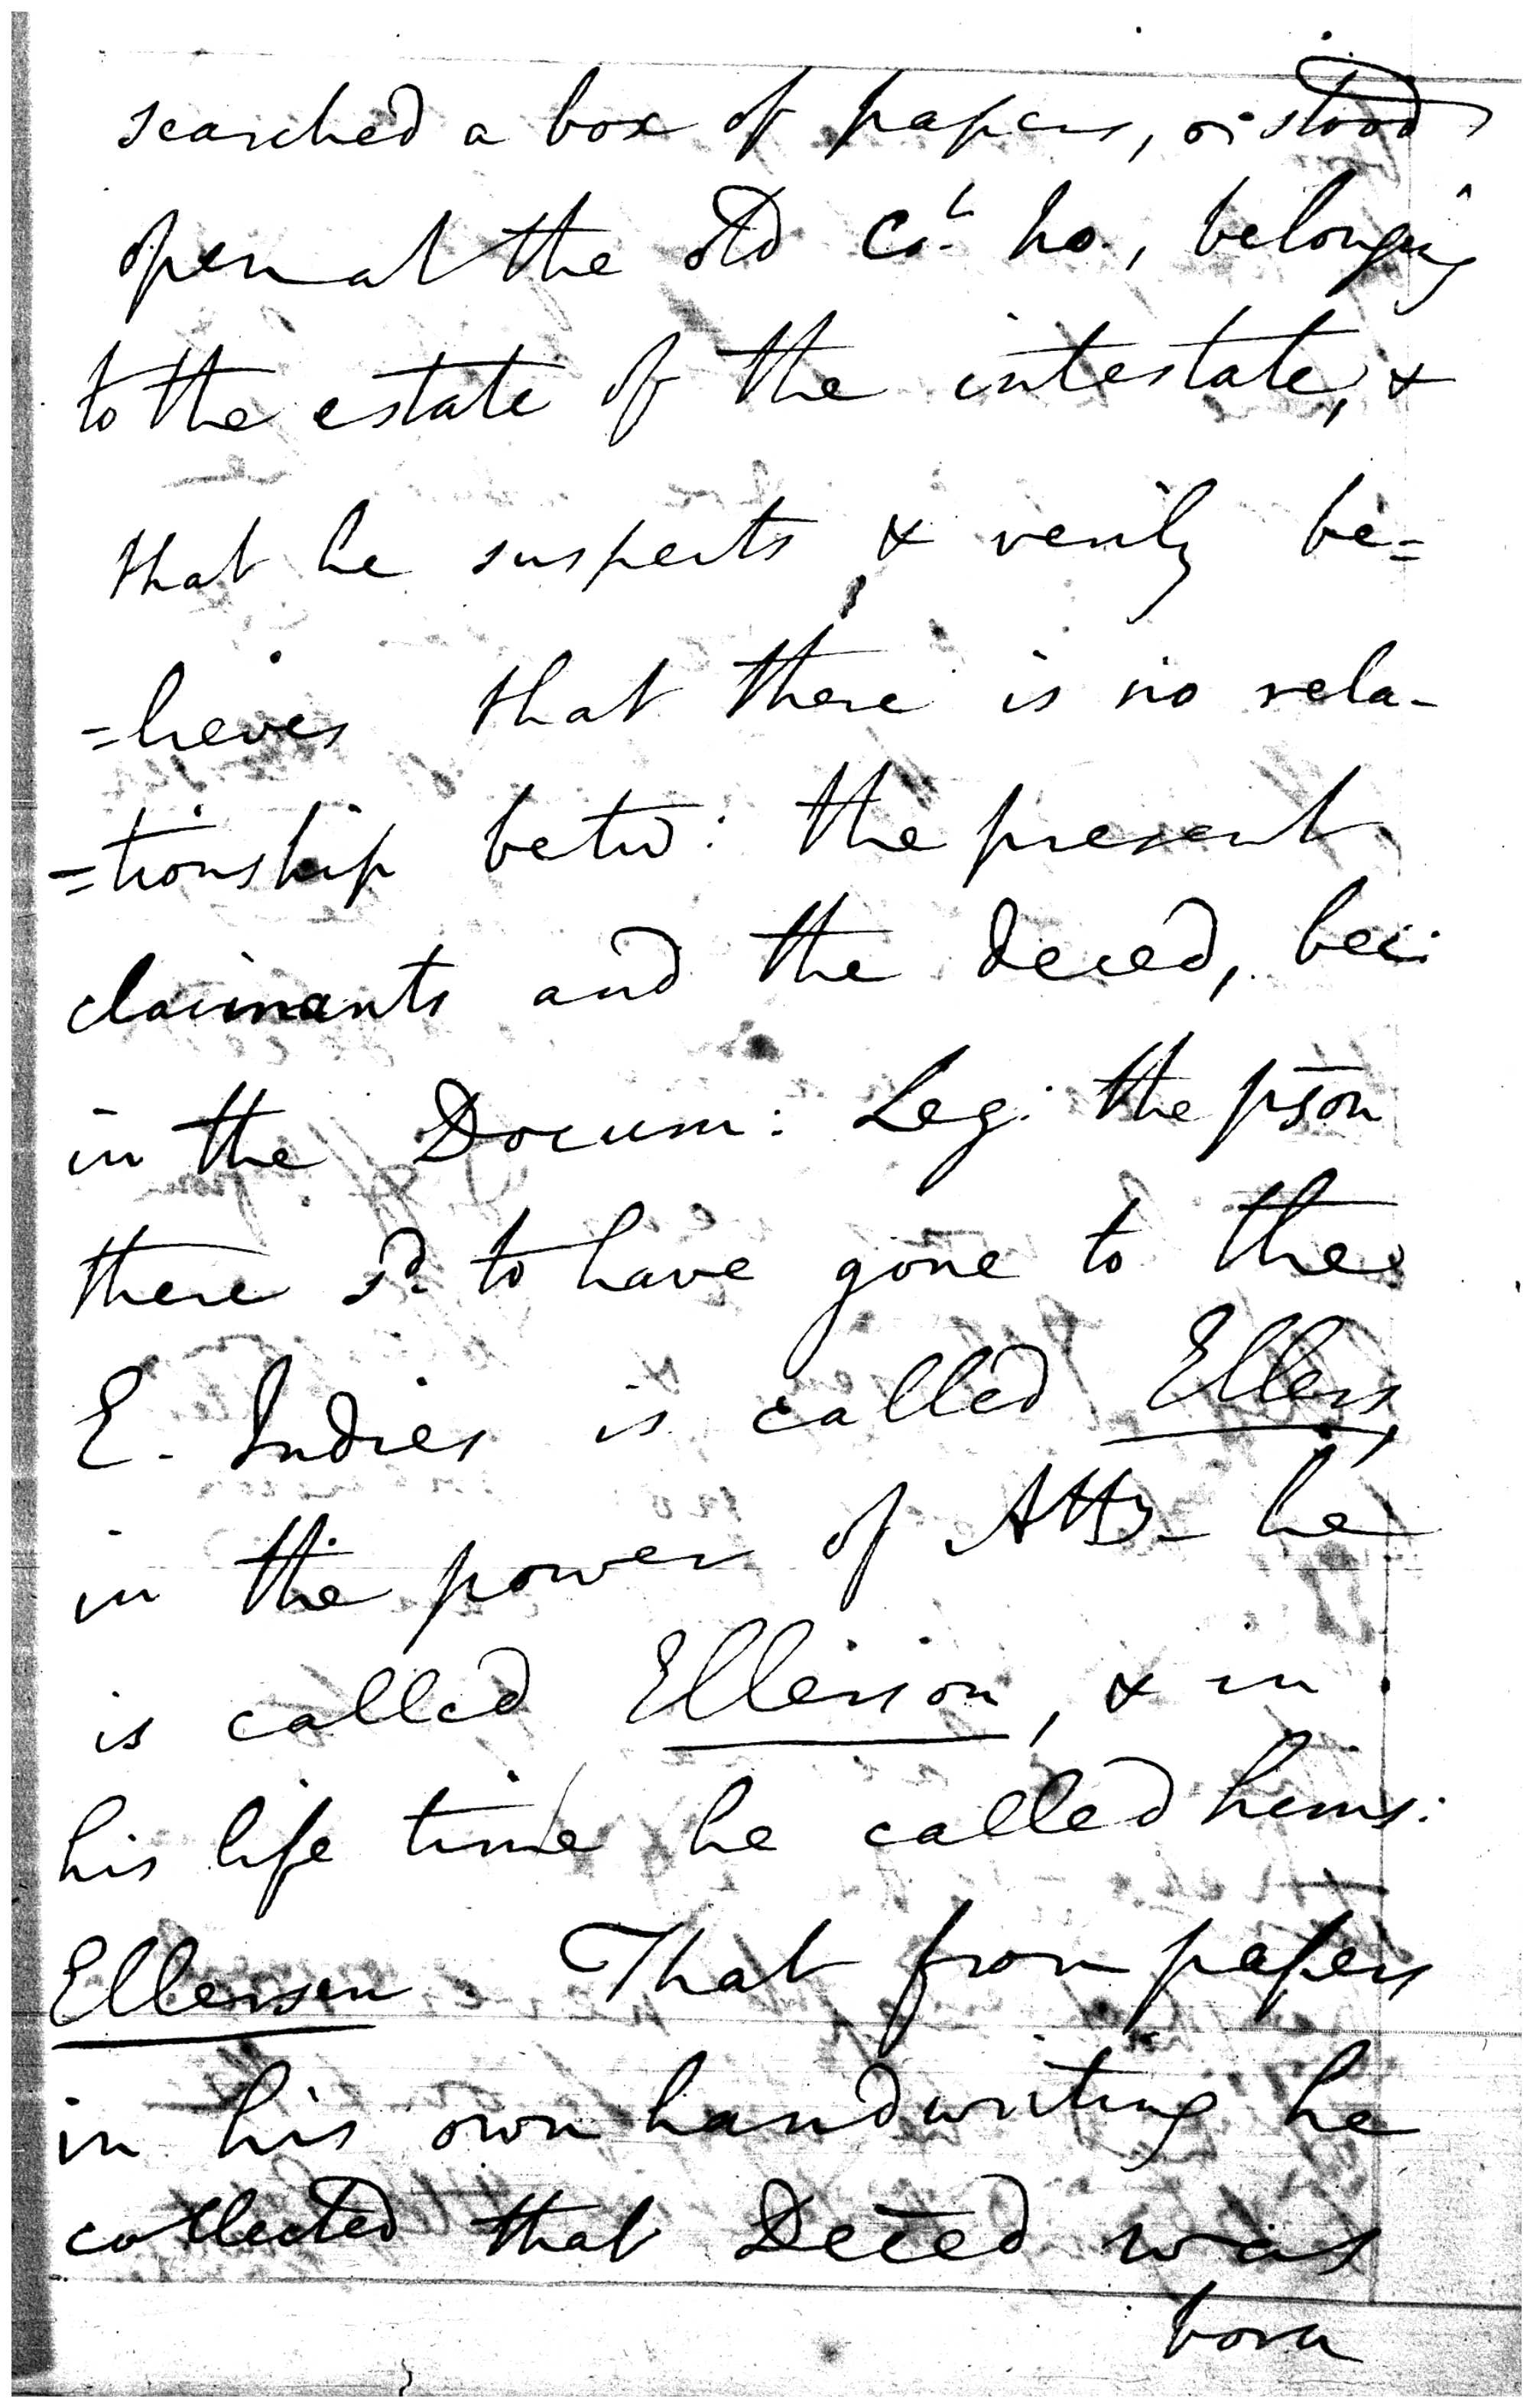 searched a box of papers, wᶜʰ stood
open at the old Cᵗ ho., belonging
to the estate of the intestate, &
that he suspects & verily be=
=lieves that there is no rela-
=tionship betw: the present
claimants and the deced, bec:
in the Docum: Leg: the pson
there sᵈ to have gone to the
E. Indies is called Ellers,
in the power of Atty he
is called Ellerson, & in
his life time he called hims:
Ellersen That from papers
in his own handwriting he
collected that Deced was
born